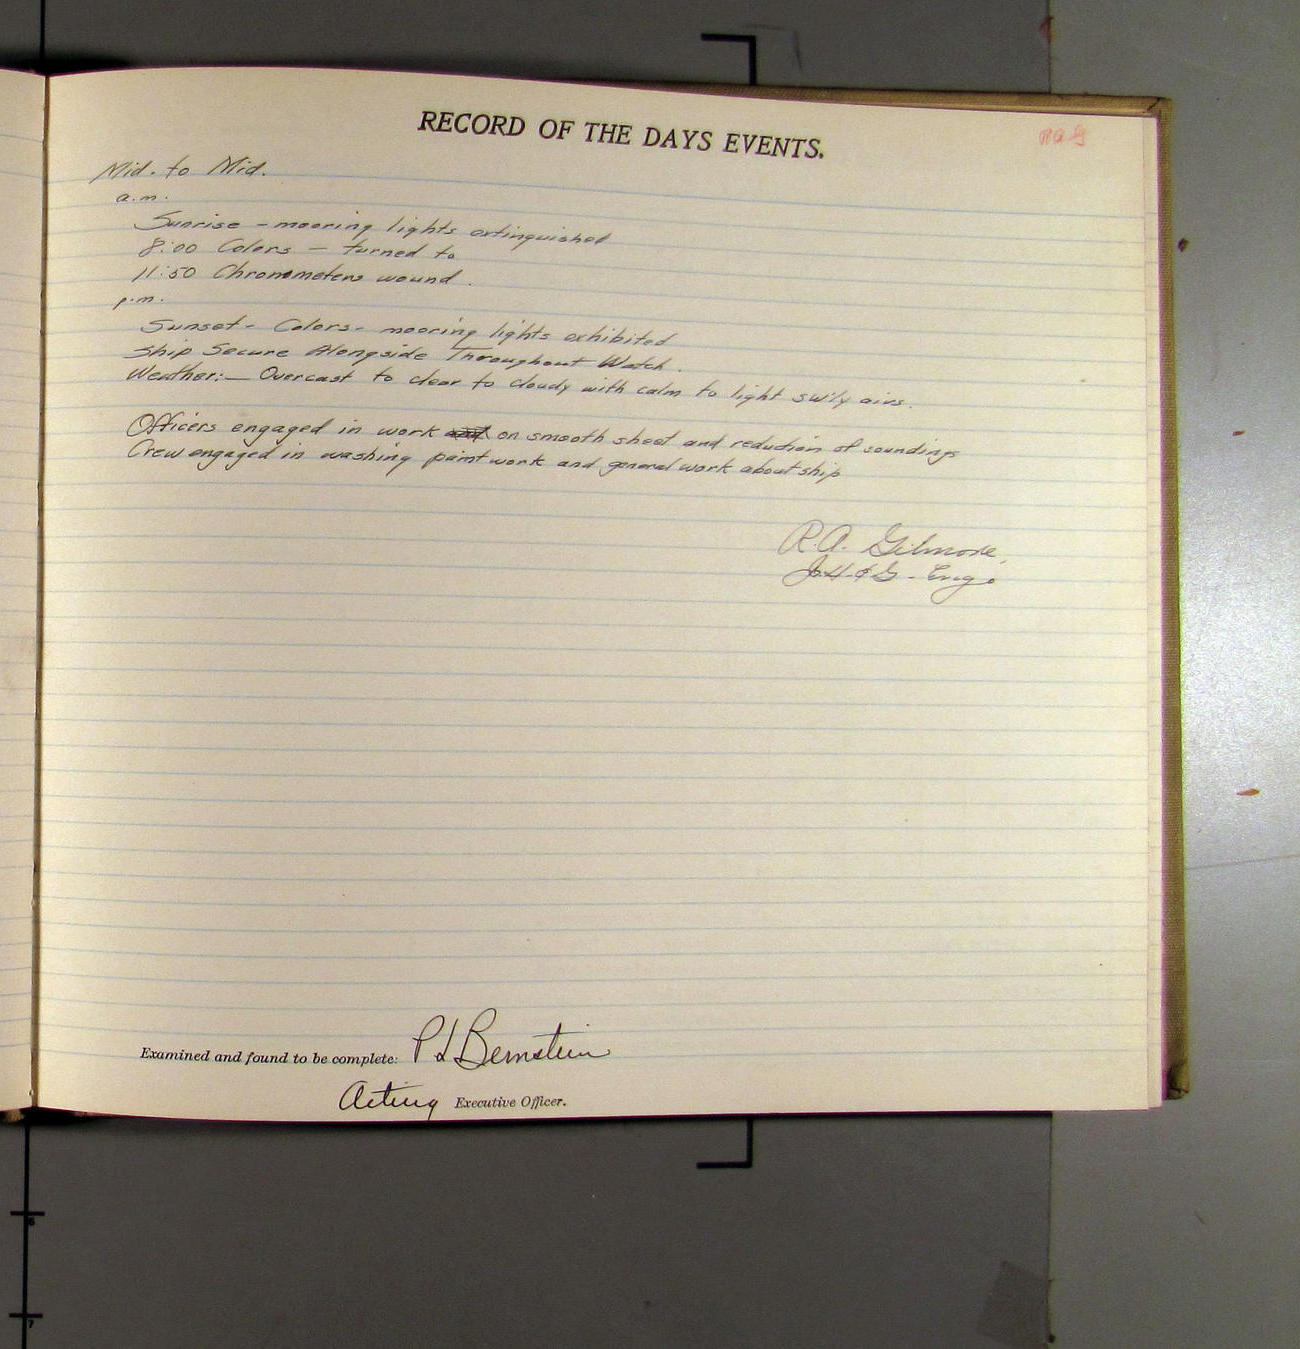 RECORD OF THE DAYS EVENTS.
RAG
Mid. to Mid.
a.m.
Sunrise - mooring lights extinguished
8:00 Colors - turned to
11:50 Chronometers wound.
p.m.
Sunset - Colors - mooring lights exhibited
Ship Secure Alongside Throughout Watch.
Weather:- Overcast to clear to cloudy with calm to light sw'ly airs.
Officers engaged in work on smooth sheet and reduction of soundings
Crew engaged in washing paint work and general work about ship
R.A. Gilmore,
Jr. H. & G. - Eng.
Examined and found to be complete: P L Bernstein
Acting Executive Officer.
6
7